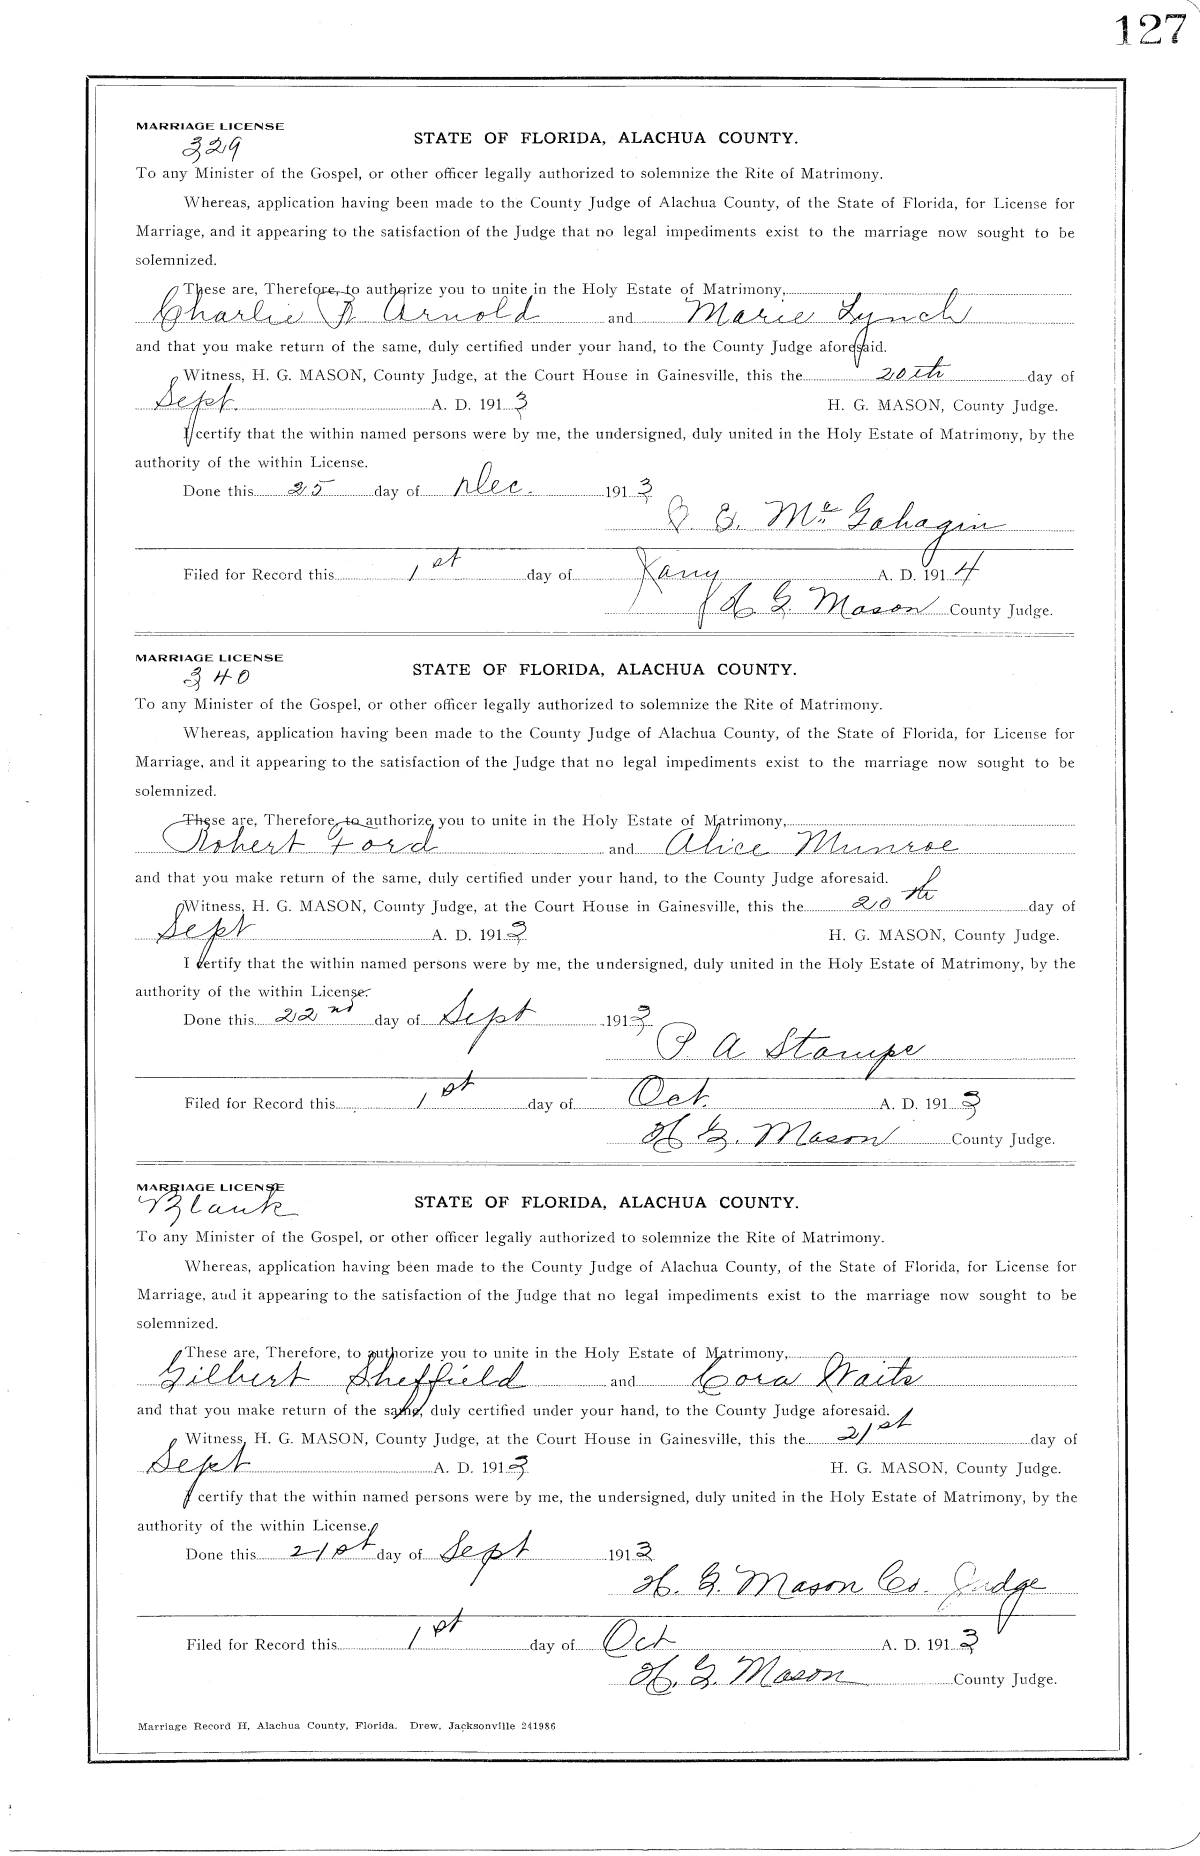 127
MARRIAGE LICENSE
329
STATE OF FLORIDA, ALACHUA COUNTY.
To any Minister of the Gospel, or other officer legally authorized to solemnize the Rite of Matrimony.
Whereas, application having been made to the County Judge of Alachua County, of the State of Florida, for License for
Marriage, and it appearing to the satisfaction of the Judge that no legal impediments exist to the marriage now sought to be
solemnized.
These are, Therefore, to authorize you to unite in the Holy Estate of Matrimony,
Charlie Arnold and Marie Lynch
and that you make return of the same, duly certified under your hand, to the County Judge aforesaid.
Witness, H. G. MASON, County Judge, at the Court House in Gainesville, this the 20th day of
Sept. A. D. 1913 H. G. MASON, County Judge.
I certify that the within named persons were by me, the undersigned, duly united in the Holy Estate of Matrimony, by the
authority of the within License.
Done this 25 day of Dec. 1913
E. Mc Gahagin
Filed for Record this 1st day of Jany A. D. 1914
H. G. Mason County Judge.
MARRIAGE LICENSE
340
STATE OF FLORIDA, ALACHUA COUNTY.
To any Minister of the Gospel, or other officer legally authorized to solemnize the Rite of Matrimony.
Whereas, application having been made to the County Judge of Alachua County, of the State of Florida, for License for
Marriage, and it appearing to the satisfaction of the Judge that no legal impediments exist to the marriage now sought to be
solemnized.
These are, Therefore, to authorize you to unite in the Holy Estate of Matrimony,
Robert Ford and Alice Munroe
and that you make return of the same, duly certified under your hand, to the County Judge aforesaid.
Witness, H. G. MASON, County Judge, at the Court House in Gainesville, this the 20th day of
Sept A. D. 1913 H. G. MASON, County Judge.
I certify that the within named persons were by me, the undersigned, duly united in the Holy Estate of Matrimony, by the
authority of the within License.
Done this 22nd day of Sept 1913
P A Stamps
Filed for Record this 1st day of Oct. A. D. 1913
H G. Mason County Judge.
MARRIAGE LICENSE
Blank
STATE OF FLORIDA, ALACHUA COUNTY.
To any Minister of the Gospel, or other officer legally authorized to solemnize the Rite of Matrimony.
Whereas, application having been made to the County Judge of Alachua County, of the State of Florida, for License for
Marriage, and it appearing to the satisfaction of the Judge that no legal impediments exist to the marriage now sought to be
solemnized.
These are, Therefore, to authorize you to unite in the Holy Estate of Matrimony,
Gilbert Sheffield and Cora Waits
and that you make return of the same, duly certified under your hand, to the County Judge aforesaid.
Witness, H. G. MASON, County Judge, at the Court House in Gainesville, this the 21st day of
Sept A. D. 1913 H. G. MASON, County Judge.
I certify that the within named persons were by me, the undersigned, duly united in the Holy Estate of Matrimony, by the
authority of the within License.
Done this 21st day of Sept 1913
H. G. Mason Co. Judge
Filed for Record this 1st day of Oct A. D. 1913
H. G. Mason County Judge.
Marriage Record H, Alachua County, Florida. Drew, Jacksonville 241986